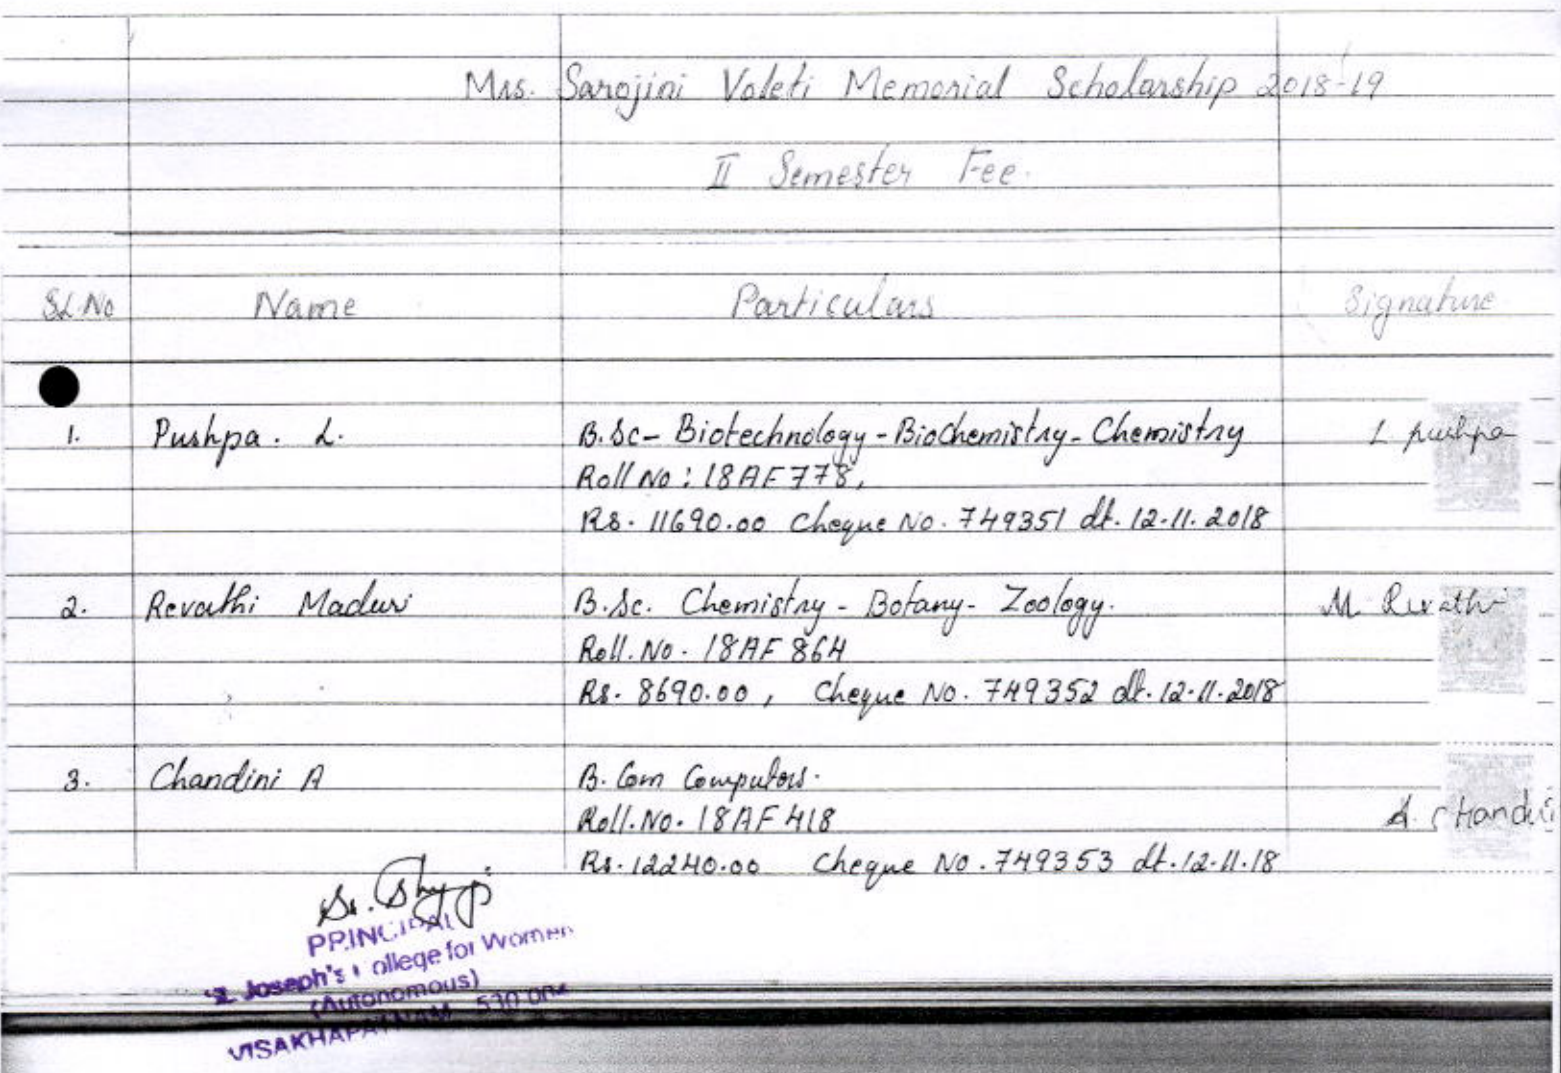 Mrs. Sarojini Valeti Memorial Scholarship 2018-19
II Semester Fee.
SL.No Name Particulars Signature
1. Pushpa. L. B.Sc- Biotechnology-BioChemistry-Chemistry L. pushpa
Roll No: 18AF778,
Rs. 11690.00 Cheque No. 749351 dt. 12-11.2018
2. Revathi Maduri B.Sc. Chemistry - Botany- Zoology. M. Revathi
Roll.No. 18AF 864
Rs. 8690.00, Cheque No. 749352 dt. 12-11.2018
3. Chandini A B.Com Computors.
Roll.No. 18AF 418 A. Chandini
Rs. 12240.00 Cheque No. 749353 dt. 12-11.18
Sr. Shyji
PRINCIPAL
St. Joseph's College for Women
(Autonomous)
VISAKHAPATNAM 530 004